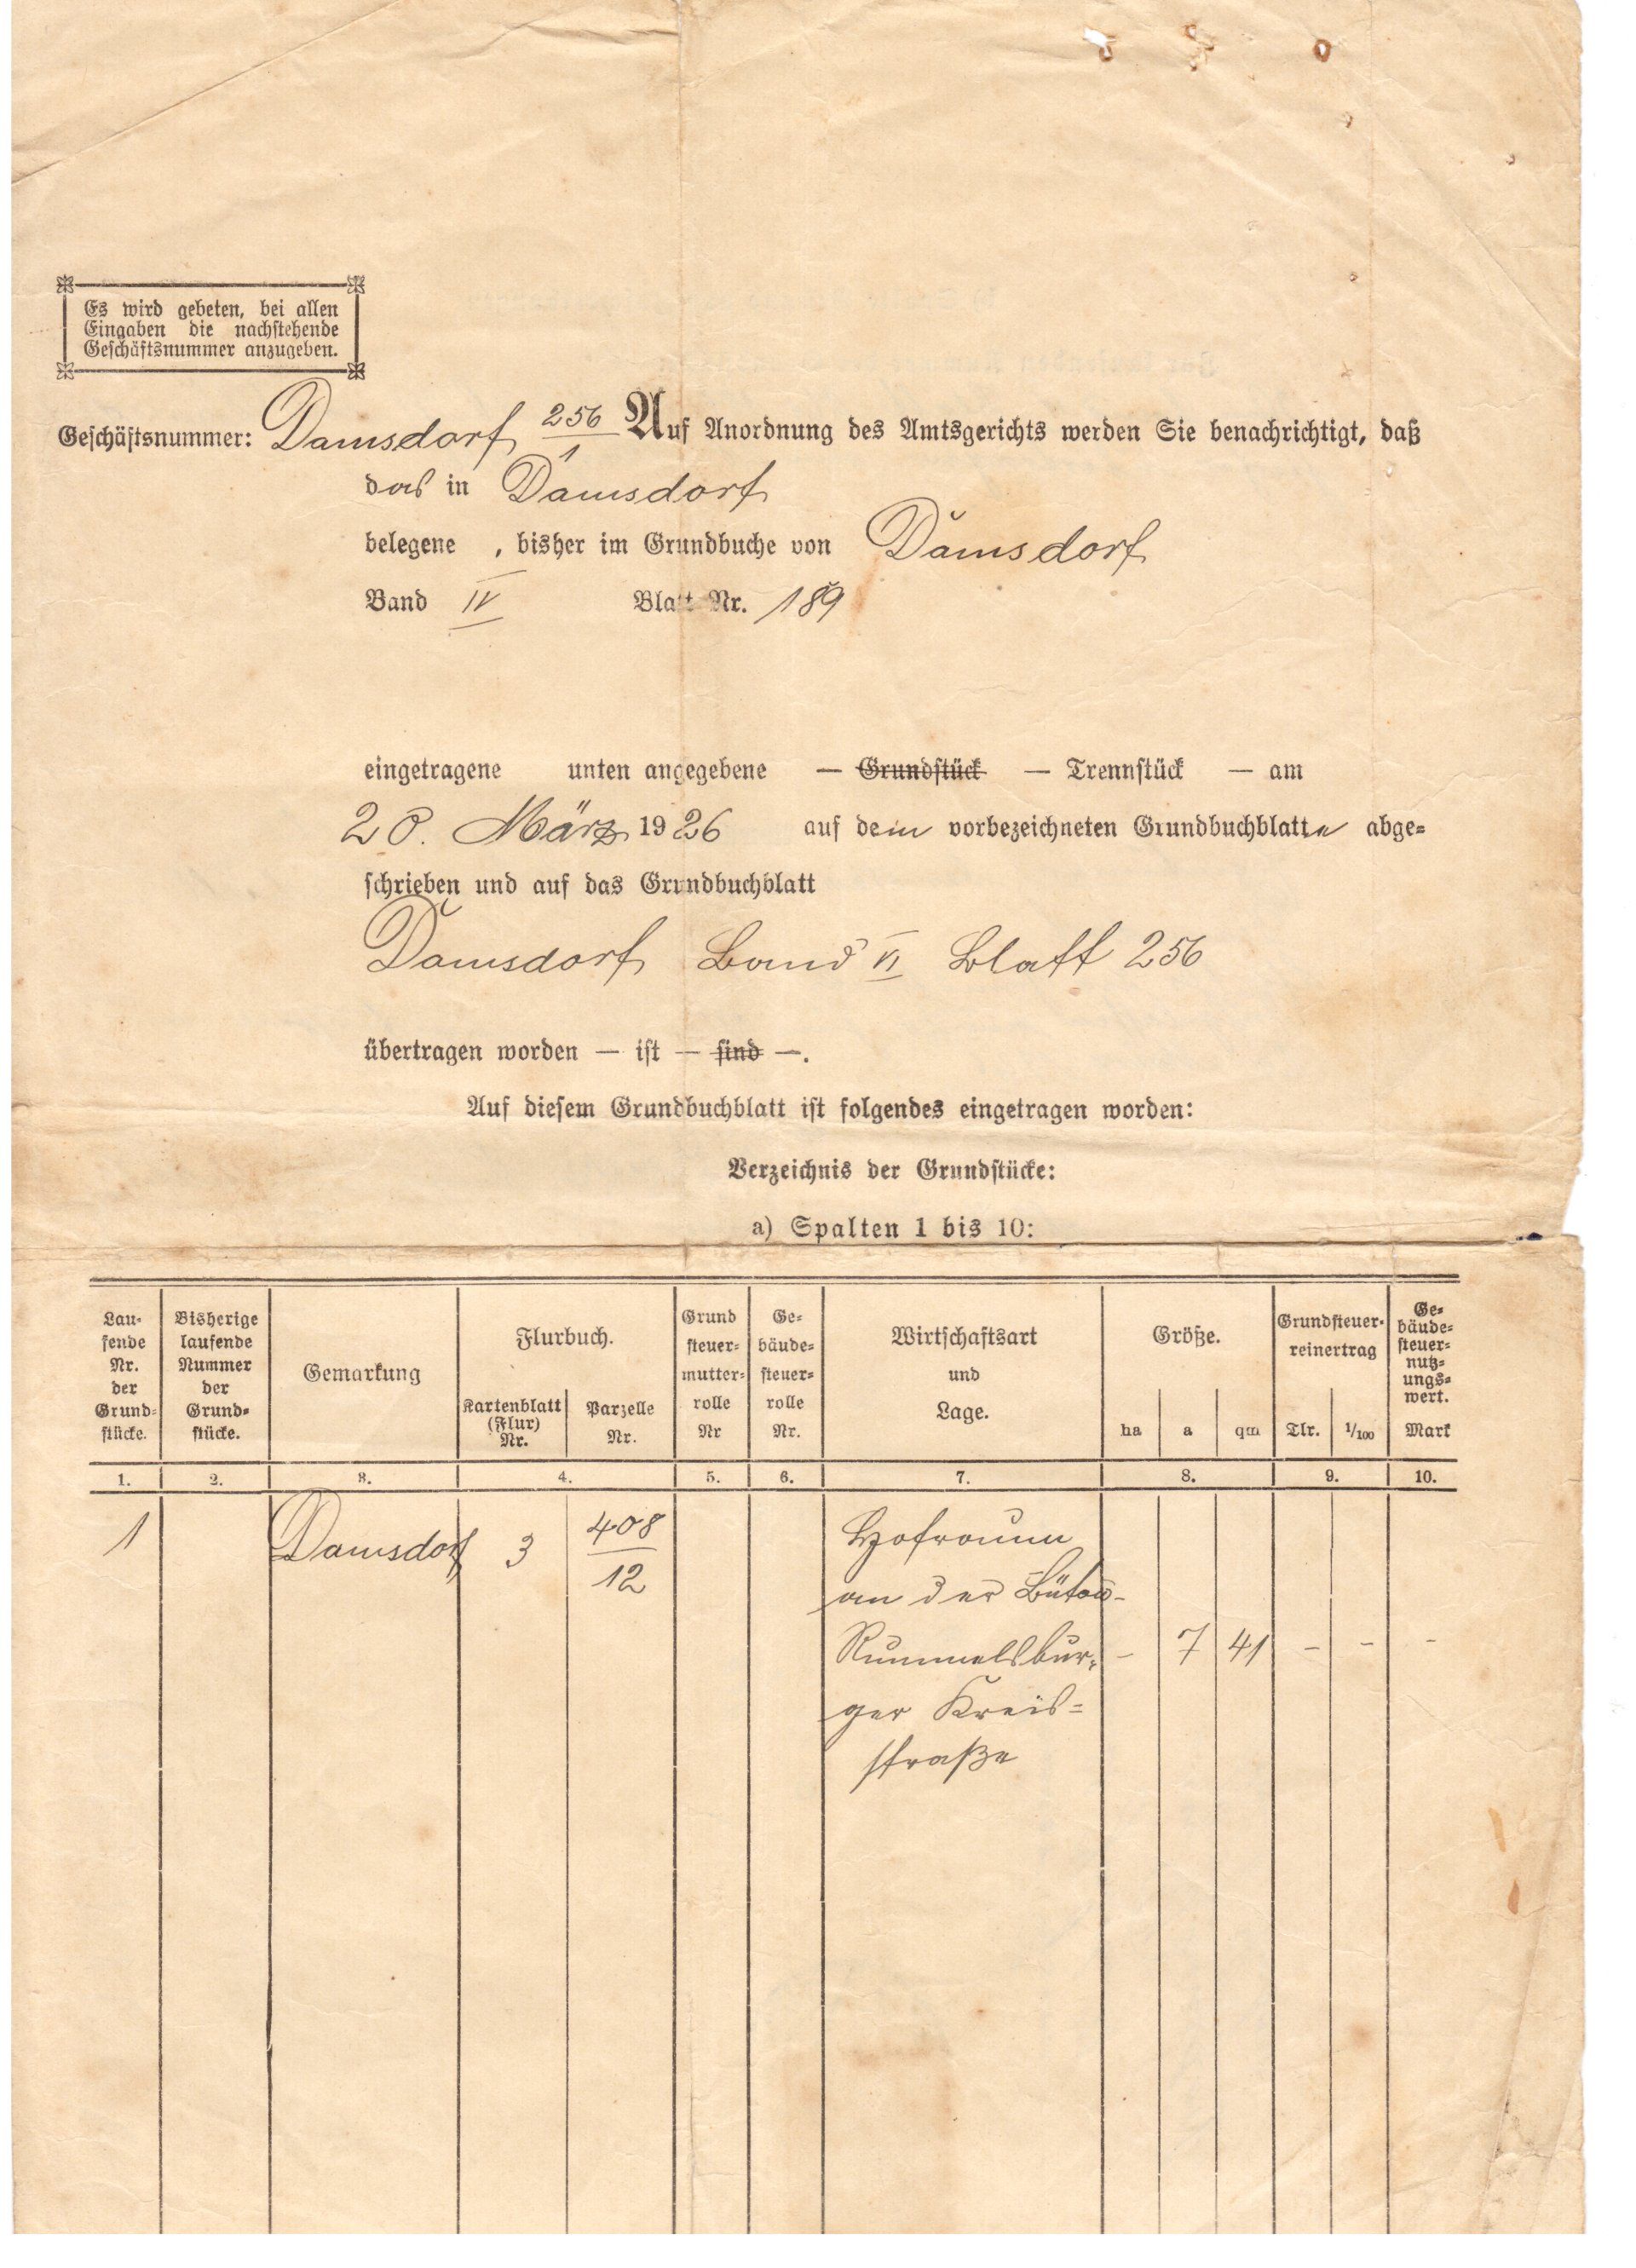 Es wird gebeten, bei allen
Eingaben die nachstehende
Geschäftsnummer anzugeben.
Geschäftsnummer: Damsdorf 256/1 Auf Anordnung des Amtsgerichts werden Sie benachrichtigt, daß
das in Damsdorf
belegene , bisher im Grundbuche von Damsdorf
Band IV Blatt Nr. 189
eingetragene unten angegebene — Grundstück — Trennstück — am
20. März 1926 auf dem vorbezeichneten Grundbuchblatte abge=
schrieben und auf das Grundbuchblatt
Damsdorf Band VI Blatt 256
übertragen worden — ist — sind —.
Auf diesem Grundbuchblatt ist folgendes eingetragen worden:
Verzeichnis der Grundstücke:
a) Spalten 1 bis 10:
Lau=
fende
Nr.
der
Grund=
stücke.
Bisherige
laufende
Nummer
der
Grund=
stücke.
Gemarkung
Flurbuch.
Kartenblatt
(Flur)
Nr.
Parzelle
Nr.
Grund
steuer=
mutter=
rolle
Nr
Ge=
bäude=
steuer=
rolle
Nr.
Wirtschaftsart
und
Lage.
Größe.
ha a qm
Grundsteuer=
reinertrag
Tlr. 1/100
Ge=
bäude=
steuer=
nutz=
ungs=
wert.
Mark
1. 2. 3. 4. 5. 6. 7. 8. 9. 10.
1 Damsdorf 3 408/12 Hofraum
an der Bütow-
Rummelsbur= - 7 41 - - -
ger Kreis=
straße